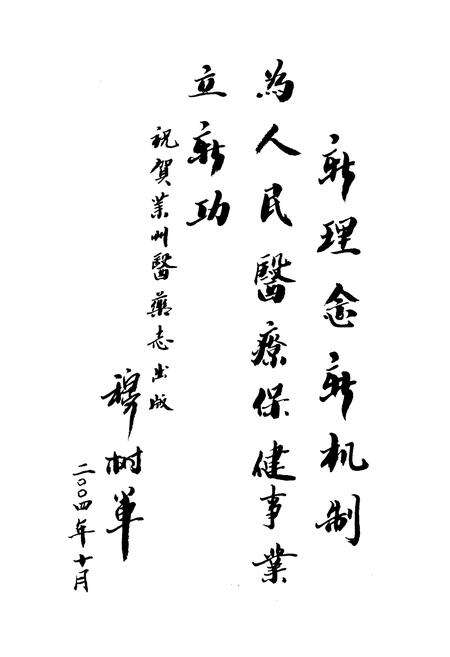 新理念新机制
為人民醫療保健事業
立新功
祝賀業州醫藥志出版
穆树
二〇〇四年十月